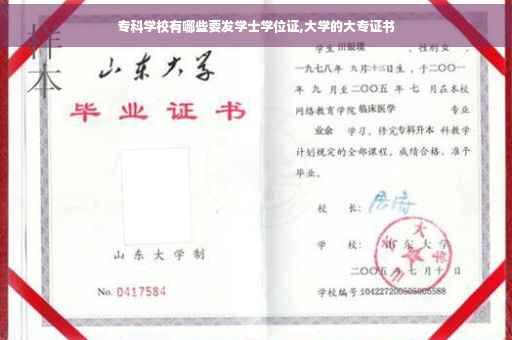 专科学校有哪些要发学士学位证,大学的大专证书
样本
山东大学
毕业证书
山东大学制
No. 0417584
学生 田银环 ,性别女 ,
一九七八年 九月十三日生,于二〇〇一
年 九 月至二〇〇五 年 七 月在本校
网络教育学院 临床医学 专业
业余 学习,修完专科升本 科教学
计划规定的全部课程,成绩合格,准予
毕业。
校 长:
学 校: 山东大学
二〇〇五 年 七 月 十 日
学校编号:104227200505005588